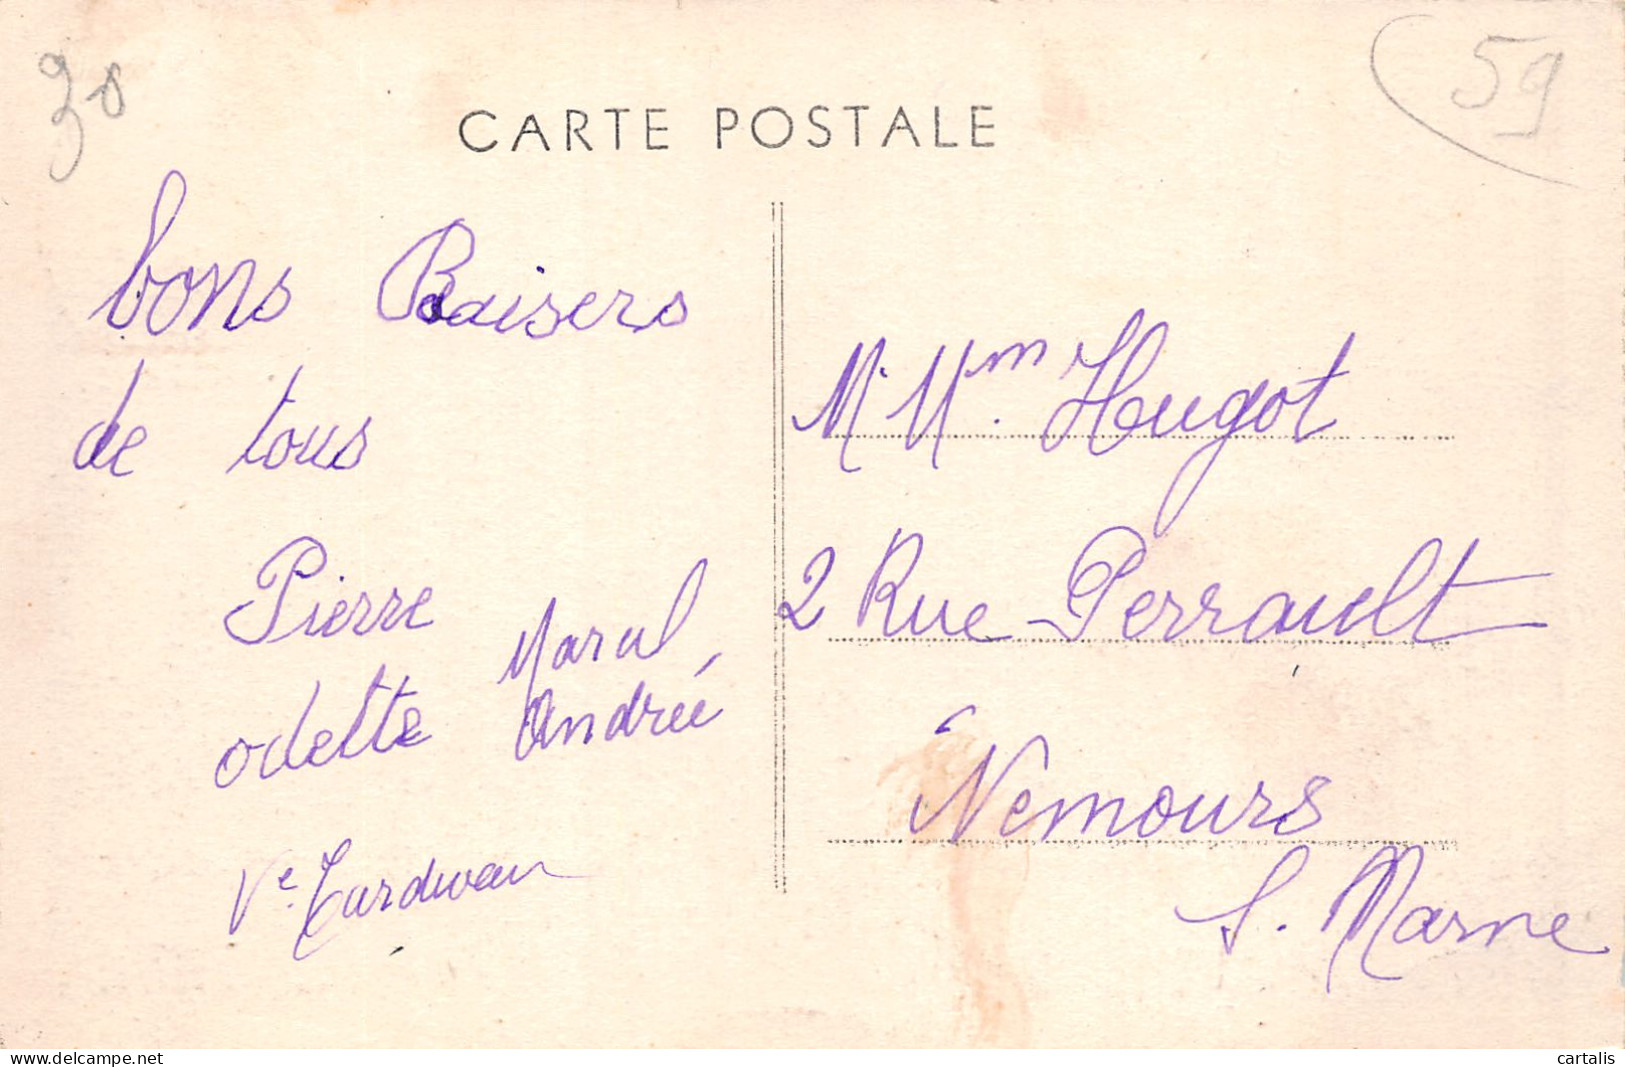 30
59
CARTE POSTALE
bons Baisers
de tous
Pierre
Marcel
odette
Andrée
Ve.
M. Mm. Hugot
2 Rue Perrault
Nemours
S. Marne
delcampe.net
cartalis